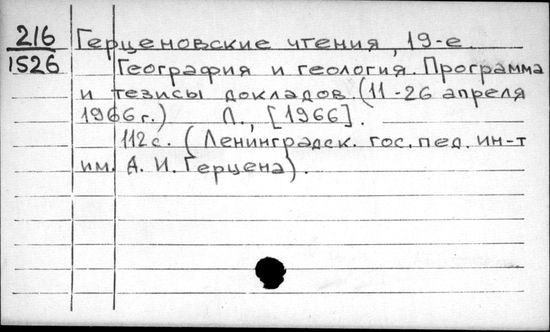 216
1526
Герценовские чтения, 19-е
География и геология. Программа
и тезисы докладов. (11-26 апреля
1966 г.) Л., [1966].
112 с. (Ленинградск. гос. пед. ин-т
им. А. И. Герцена).